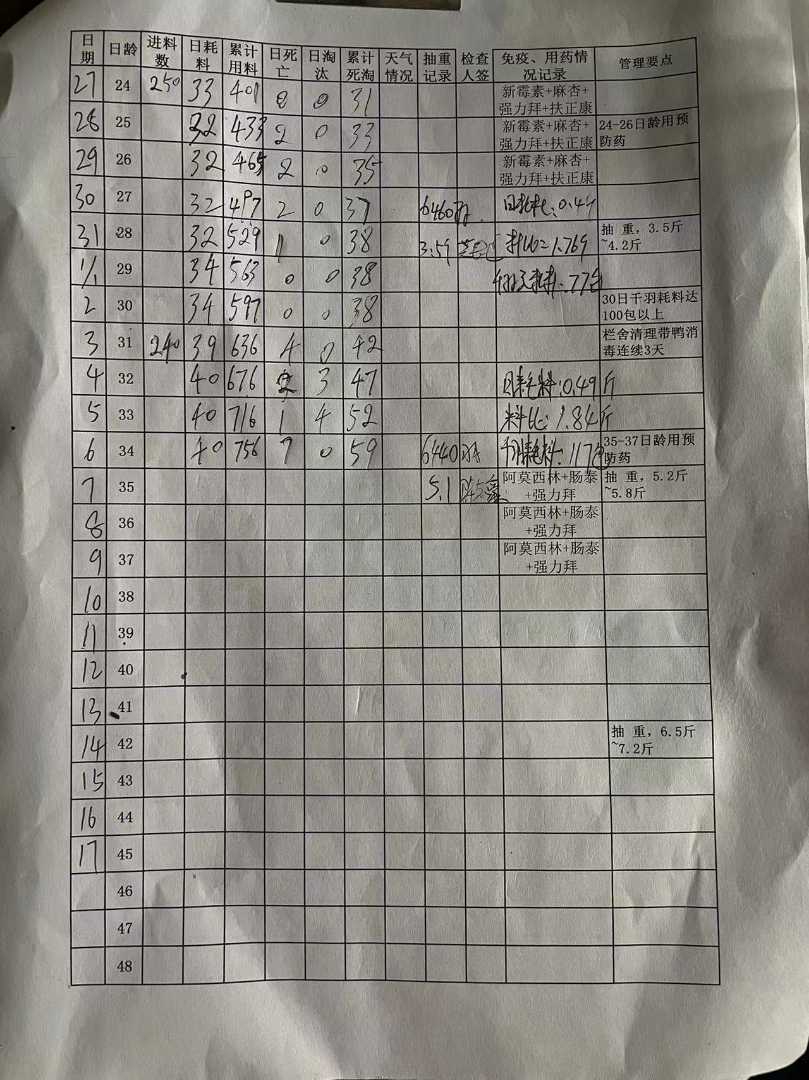 日期 日龄 进料数 日耗料 累计用料 日死亡 日淘汰 累计死淘 天气情况 抽重记录 检查人签 免疫、用药情况记录 管理要点
27 24 250 33 401 0 0 31 新霉素+麻杏+强力拜+扶正康
28 25 32 433 2 0 33 新霉素+麻杏+强力拜+扶正康 24-26日龄用预防药
29 26 32 465 2 0 35 新霉素+麻杏+强力拜+扶正康
30 27 32 497 2 0 37 6460 日耗料:0.49
31 28 32 529 1 0 38 3.59 料比=1.769 抽 重，3.5斤~4.2斤
1/1 29 34 563 0 0 38 耗料:77包
2 30 34 597 0 0 38 30日千羽耗料达100包以上
3 31 240 39 636 4 0 42 栏舍清理带鸭消毒连续3天
4 32 40 676 2 3 47 日耗料:0.49斤
5 33 40 716 1 4 52 料比:1.84斤
6 34 40 756 7 0 59 6440 耗料:117包 35-37日龄用预防药
7 35 5.1 阿莫西林+肠泰+强力拜 抽 重，5.2斤~5.8斤
8 36 阿莫西林+肠泰+强力拜
9 37 阿莫西林+肠泰+强力拜
10 38
11 39
12 40
13 41
14 42 抽 重，6.5斤~7.2斤
15 43
16 44
17 45
46
47
48